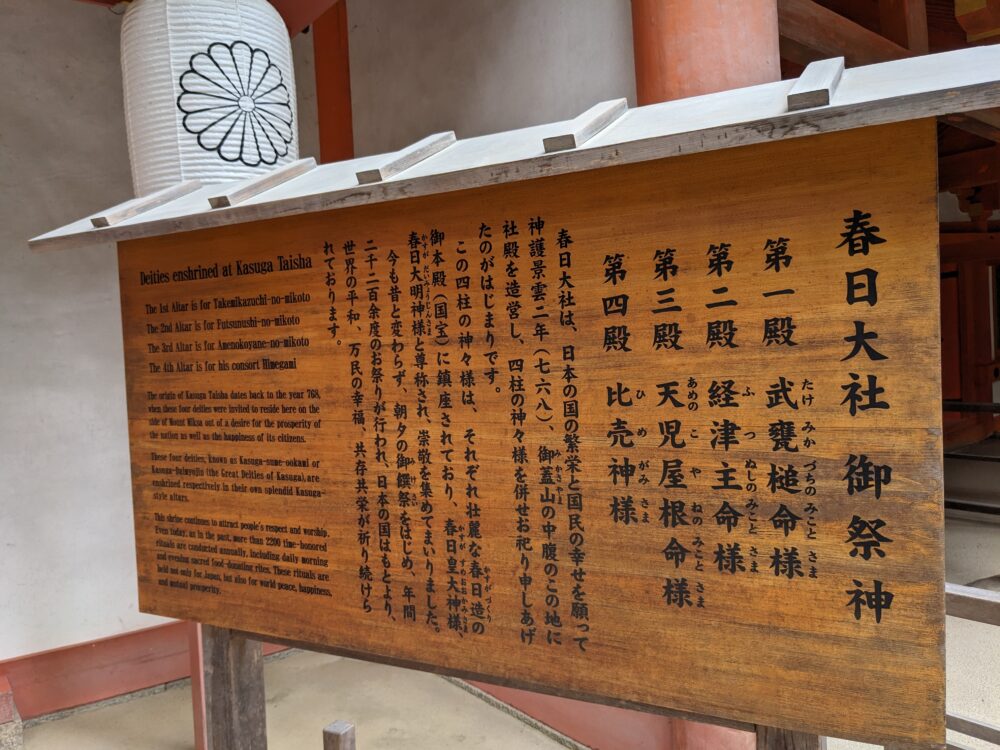 春日大社御祭神
第一殿 武甕槌命様
たけ みか づちの みこと さま
第二殿 経津主命様
ふ つ ぬしの みこと さま
第三殿 天児屋根命様
あめの こ や ねの みこと さま
第四殿 比売神様
ひ め がみ さま
春日大社は、日本の国の繁栄と国民の幸せを願って
神護景雲二年(七六八)、御蓋山の中腹のこの地に
みかさやま
社殿を造営し、四柱の神々様を併せお祀り申しあげ
たのがはじまりです。
この四柱の神々様は、それぞれ壮麗な春日造の
かすがづくり
御本殿(国宝)に鎮座されており、春日皇大神様、
かすがすめおおかみさま
春日大明神様と尊称され、崇敬を集めてまいりました。
かすが だいみょうじんさま
今も昔と変わらず、朝夕の御饌祭をはじめ、年間
みけさい
二千二百余度のお祭りが行われ、日本の国はもとより、
世界の平和、万民の幸福、共存共栄が祈り続けら
れております。
Deities enshrined at Kasuga Taisha
The 1st Altar is for Takemikazuchi-no-mikoto
The 2nd Altar is for Futsunushi-no-mikoto
The 3rd Altar is for Amenokoyane-no-mikoto
The 4th Altar is for his consort Himegami
The origin of Kasuga Taisha dates back to the year 768,
when these four deities were invited to reside here on the
side of Mount Mikasa out of a desire for the prosperity of
the nation as well as the happiness of its citizens.
These four deities, known as Kasuga-sume-ookami or
Kasuga-Daimyojin (the Great Deities of Kasuga), are
enshrined respectively in their own splendid Kasuga-
style altars.
This shrine continues to attract people's respect and worship.
Even today, as in the past, more than 2200 time-honored
rituals are conducted annually, including daily morning
and evening sacred food-donating rites. These rituals are
held not only for Japan, but also for world peace, happiness,
and mutual prosperity.